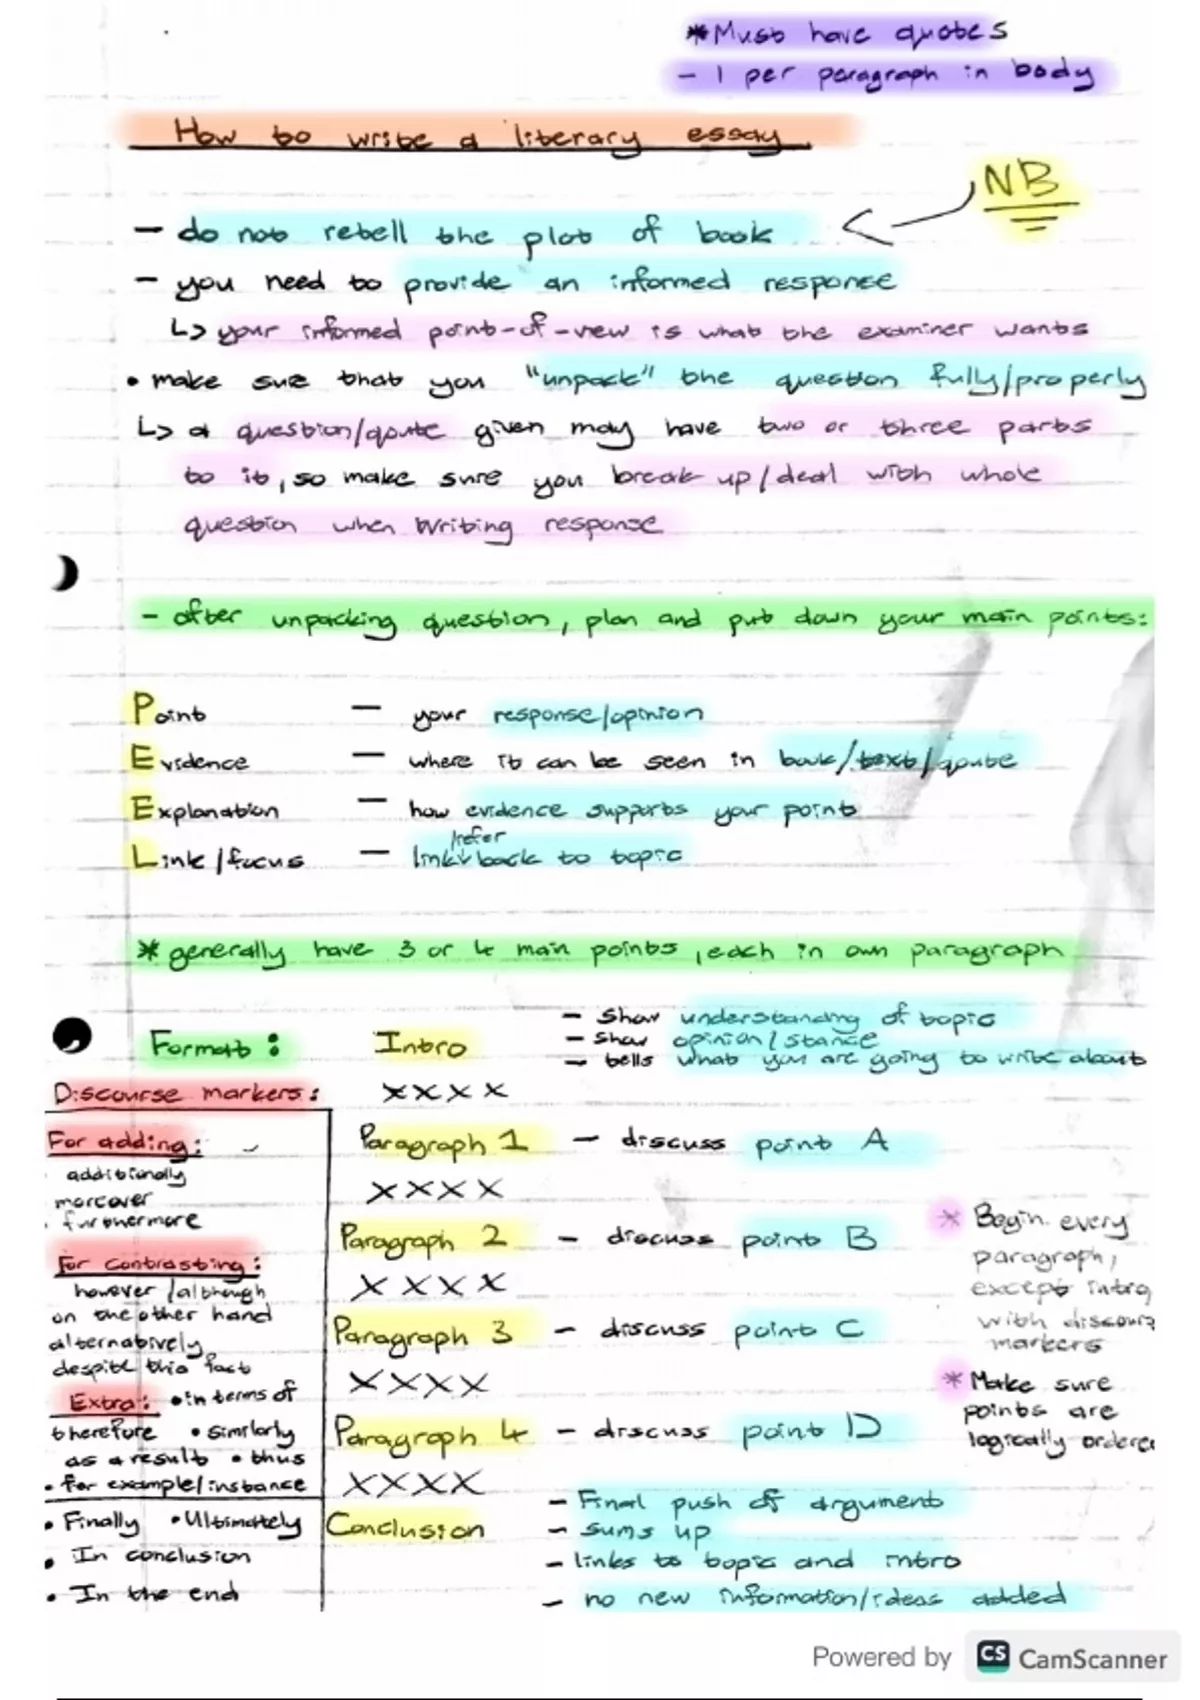 *Must have quotes
- 1 per paragraph in body
How to write a literary essay
NB
- do not retell the plot of book
- you need to provide an informed response
↳ your informed point-of-view is what the examiner wants
• make sure that you "unpack" the question fully/properly
↳ a question/qoute given may have two or three parts
to it, so make sure you break up/deal with whole
question when writing response
- after unpacking question, plan and put down your main points:
Point - your response/opinion
Evidence - where it can be seen in book/text/qoute
Explanation - how evidence supports your point
/refer
Link/focus - link back to topic
* generally have 3 or 4 main points, each in own paragraph
Format: Intro
- Show understanding of topic
- Show opinion/stance
- tells what you are going to write about
Discourse markers:
XXXX
For adding:
additionally
moreover
furthermore
For contrasting:
however/although
on the other hand
alternatively
despite this fact
Extra: • in terms of
therefore • similarly
as a result • thus
• for example/instance
• Finally • Ultimately
• In conclusion
• In the end
Paragraph 1 - discuss point A
XXXX
Paragraph 2 - discuss point B
XXXX
Paragraph 3 - discuss point C
XXXX
Paragraph 4 - discuss point D
XXXX
Conclusion
- Final push of argument
- sums up
- links to topic and intro
- no new information/ideas added
* Begin every
paragraph,
except intro,
with discours
markers
* Make sure
points are
logically ordered
Powered by CS CamScanner